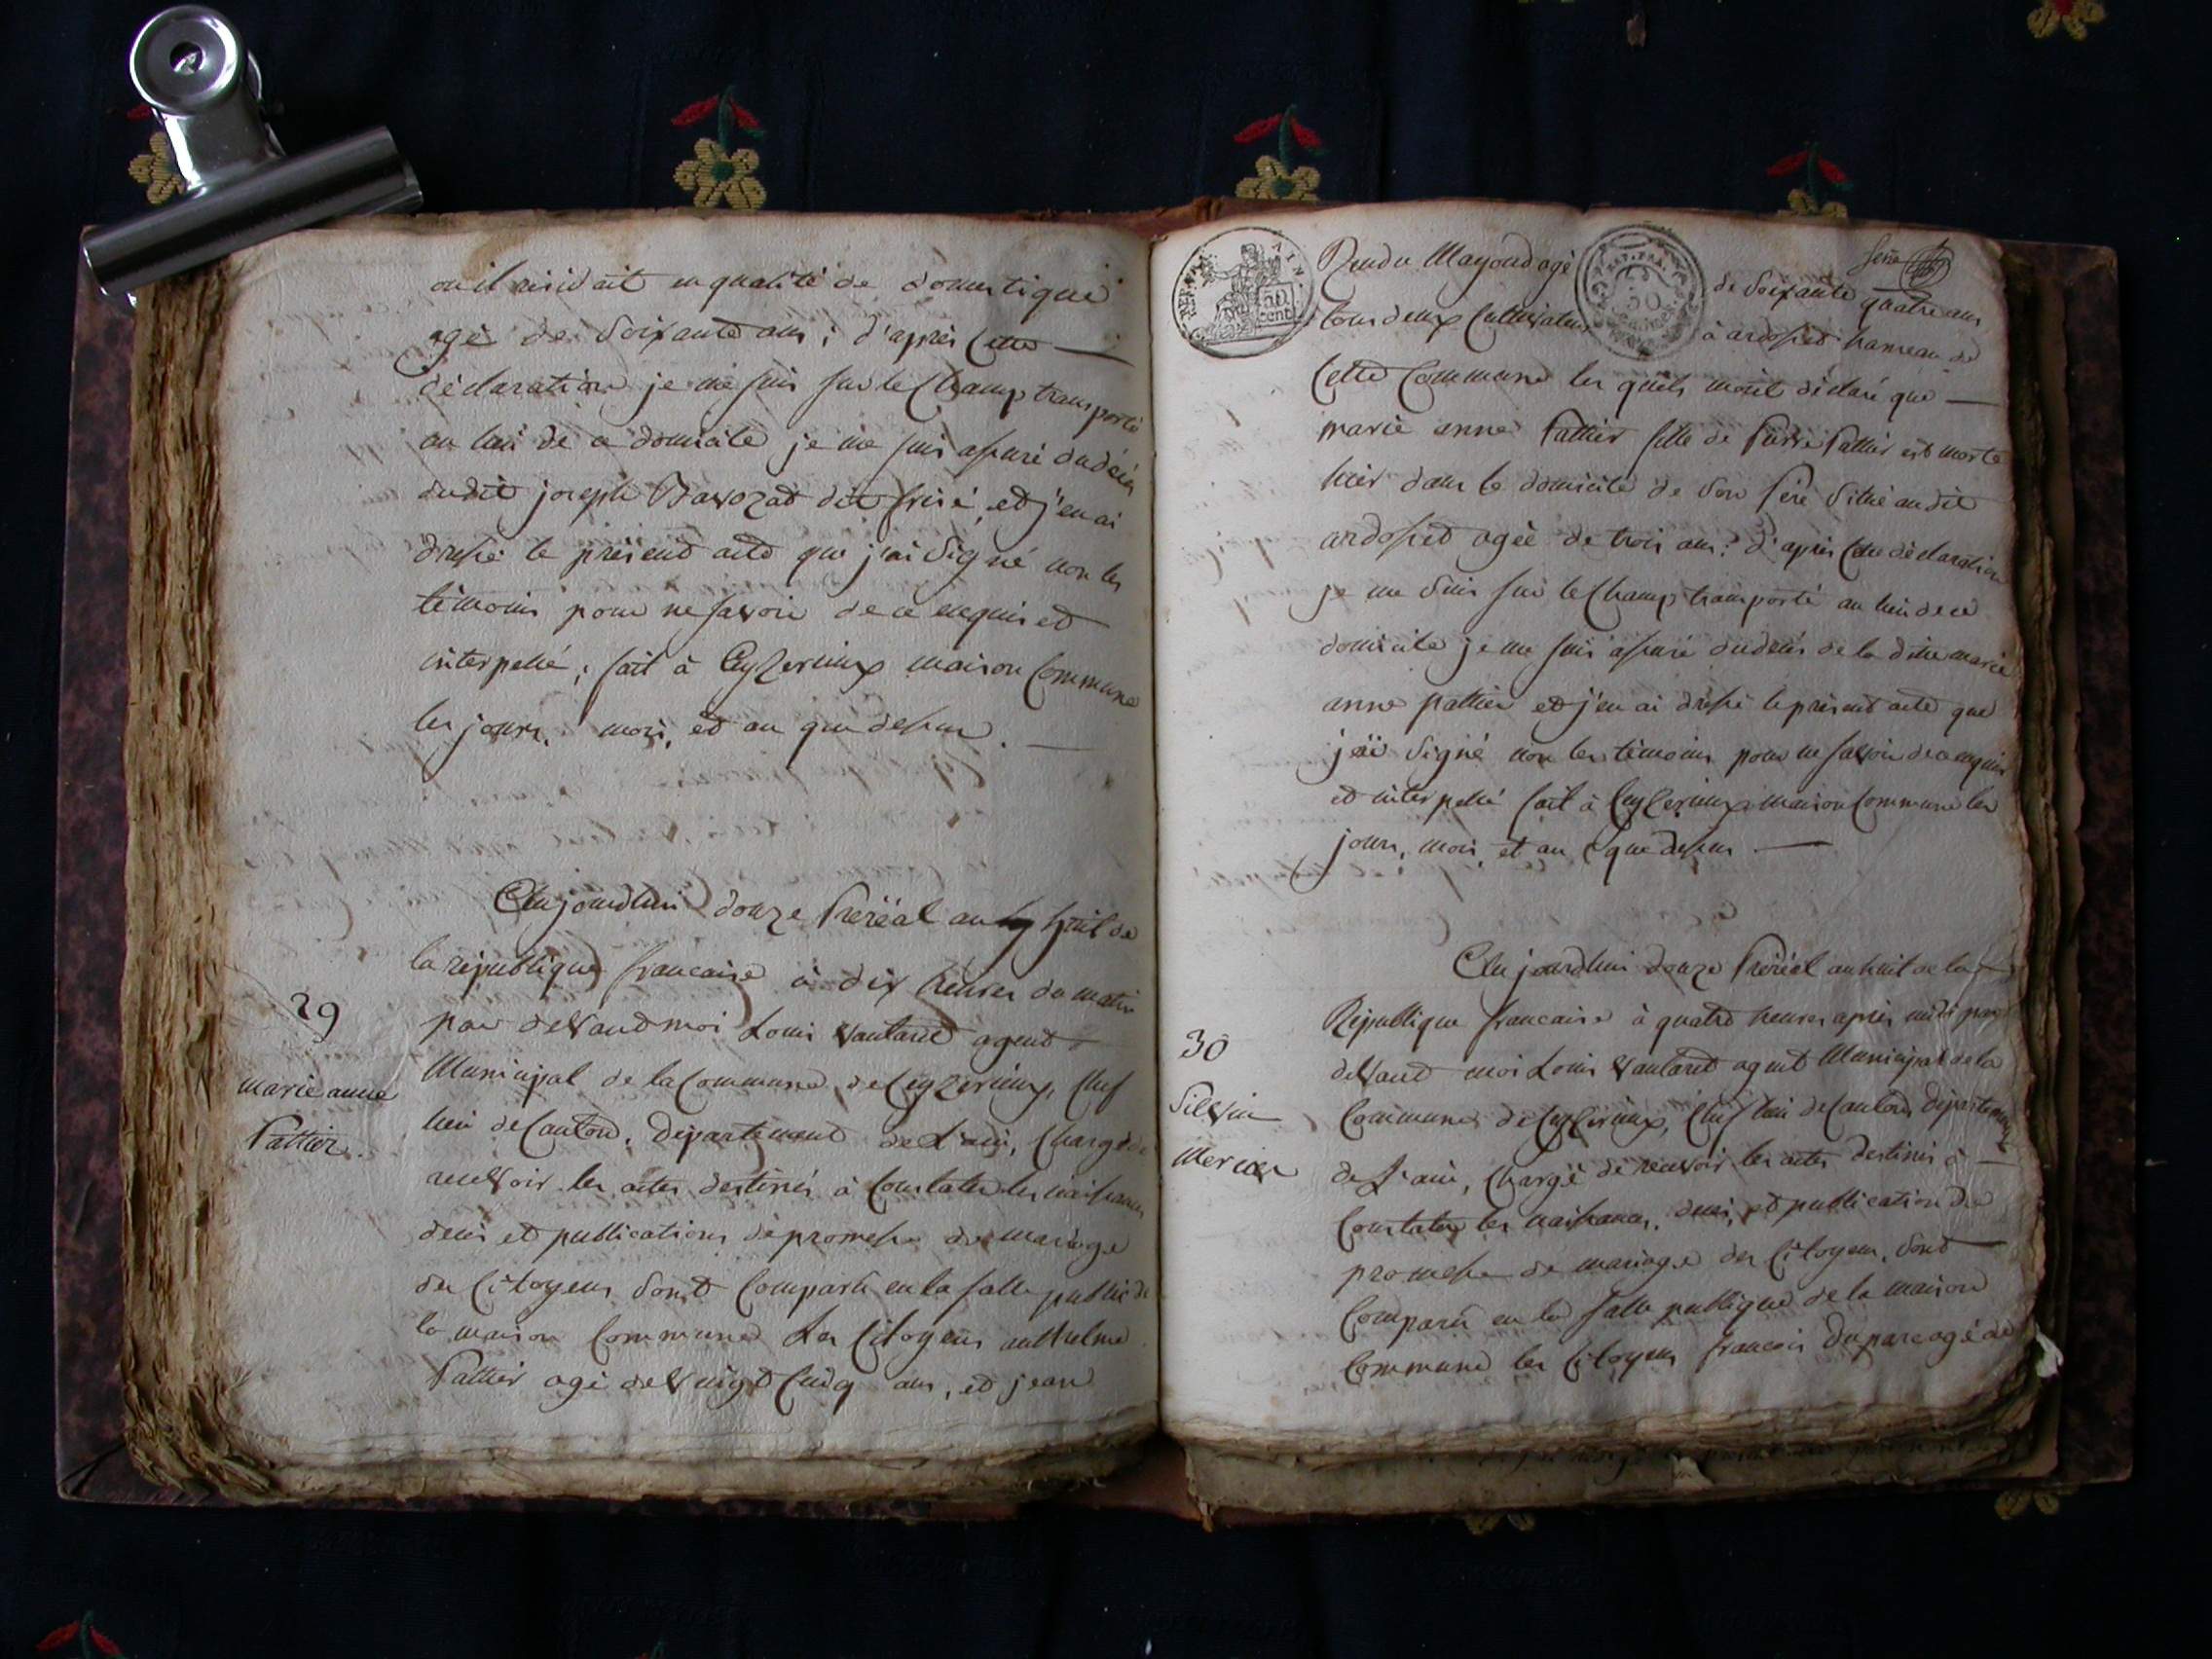 ou il residait en qualité de domestique
agé de soixante ans ; d'après cette
déclaration je me suis sur le Champ transporté
au lieu de ce domicile je me suis assuré du décès
dudit joseph Bavozat dit frisé, et j'en ai
dressé le présent acte que j'ai signé non les
témoins pour ne savoir de ce enquis et
interpellé ; fait à Ceyzerieux maison Commune
les jours, mois, et an que dessus.
Aujourdhui douze Preréal an huit de
la république francaise à dix heures du matin
29
par devant moi Louis Vautaret agent
marie anne
Municipal de la Commune de Ceyzerieux, Chef
Pattier.
lieu de Canton, departement de L'ain, Chargé de
recevoir les actes destinés à Constater les naissances
decès et publications de promesse de mariage
des Citoyens sont Comparu en la salle public de
la maison Commune Les Citoyens anthelme
Pattier agé de vingt Cinq ans, et jean
Rendu Mayoud agé de soixante quatre ans
tous deux Cultivateurs à ardosset hameau de
Cette Commune les quels m'ont déclaré que
marie anne Pattier fille de Pierre Pattier est morte
hier dans le domicile de son père situé au dit
ardosset agée de trois ans : d'après cette déclaration
je me suis sur le Champ transporté au lieu de ce
domicile je me suis assuré du decès de la dite marie
anne pattier et j'en ai dressé le présent acte que
j'ai signé non les témoins pour ne savoir de ce enquis
et interpellé fait à Ceyzerieux maison Commune les
jours, mois, et an que dessus
Aujourdhui douze Preréal an huit de la
30
République francaise à quatre heures après midi par
devant moi Louis Vautaret agent Municipal de la
Silvin
Commune de Ceyzerieux, Chef lieu de Canton, departement
Mercier
de L'ain, Chargé de recevoir les actes destinés à
Constater les naissances, decès, et publication de
promesse de mariage des Citoyens, sont
Comparu en la salle publique de la maison
Commune les Citoyens francois Duparc agé de